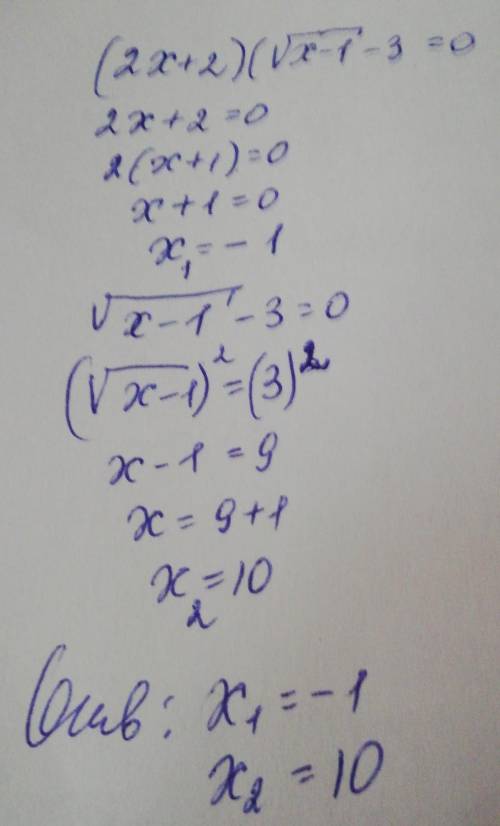 (2x+2)(√x-1 -3 =0
2x+2=0
2(x+1)=0
x+1=0
x₁=-1
√x-1 -3=0
(√x-1)²=(3)²
x-1=9
x=9+1
x₂=10
Отв: x₁=-1
x₂=10